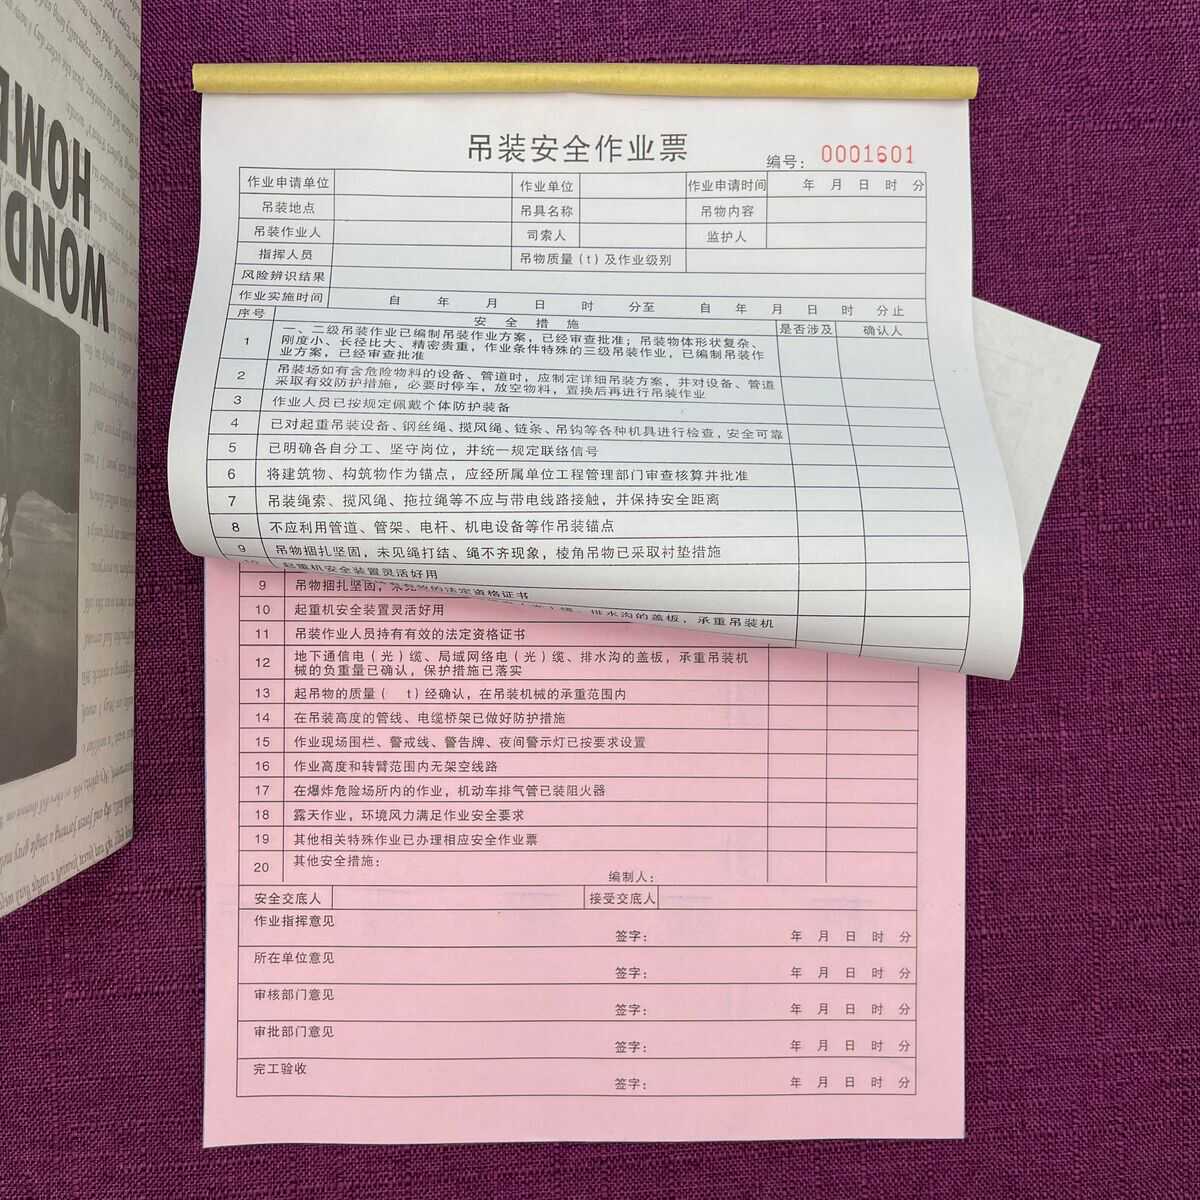 HOME
WOND
吊装安全作业票
编号: 0001601
作业申请单位 作业单位 作业申请时间 年 月 日 时 分
吊装地点 吊具名称 吊物内容
吊装作业人 司索人 监护人
指挥人员 吊物质量(t)及作业级别
风险辨识结果
作业实施时间 自 年 月 日 时 分至 自 年 月 日 时 分止
序号 安全措施 是否涉及 确认人
1 一、二级吊装作业已编制吊装作业方案，已经审查批准；吊装物体形状复杂、
刚度小、长径比大、精密贵重，作业条件特殊的三级吊装作业，已编制吊装作
业方案，已经审查批准
2 吊装场如有含危险物料的设备、管道时，应制定详细吊装方案，并对设备、管道
采取有效防护措施，必要时停车，放空物料，置换后再进行吊装作业
3 作业人员已按规定佩戴个体防护装备
4 已对起重吊装设备、钢丝绳、揽风绳、链条、吊钩等各种机具进行检查，安全可靠
5 已明确各自分工、坚守岗位，并统一规定联络信号
6 将建筑物、构筑物作为锚点，应经所属单位工程管理部门审查核算并批准
7 吊装绳索、揽风绳、拖拉绳等不应与带电线路接触，并保持安全距离
8 不应利用管道、管架、电杆、机电设备等作吊装锚点
9 吊物捆扎坚固，未见绳打结、绳不齐现象，棱角吊物已采取衬垫措施
起重机安全装置灵活好用
的法定资格证书
排水沟的盖板，承重吊装机
9 吊物捆扎坚固，
10 起重机安全装置灵活好用
11 吊装作业人员持有有效的法定资格证书
12 地下通信电(光)缆、局域网络电(光)缆、排水沟的盖板，承重吊装机
械的负重量已确认，保护措施已落实
13 起吊物的质量( t)经确认，在吊装机械的承重范围内
14 在吊装高度的管线、电缆桥架已做好防护措施
15 作业现场围栏、警戒线、警告牌、夜间警示灯已按要求设置
16 作业高度和转臂范围内无架空线路
17 在爆炸危险场所内的作业，机动车排气管已装阻火器
18 露天作业，环境风力满足作业安全要求
19 其他相关特殊作业已办理相应安全作业票
20 其他安全措施:
编制人:
安全交底人 接受交底人
作业指挥意见
签字: 年 月 日 时 分
所在单位意见
签字: 年 月 日 时 分
审核部门意见
签字: 年 月 日 时 分
审批部门意见
签字: 年 月 日 时 分
完工验收
签字: 年 月 日 时 分